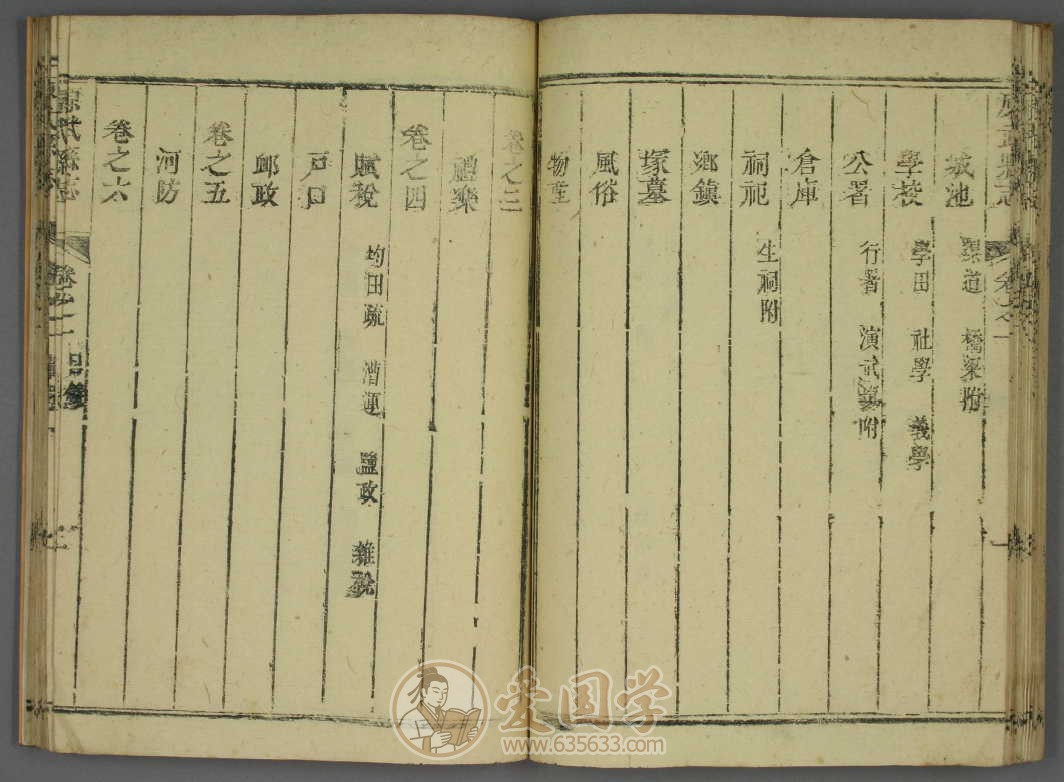 城池 濠道 橋梁附
學校 學田 社學 義學
公署 行署 演武 附
倉庫
祠祀 生祠附
鄉鎮
塚墓
風俗
物產
卷之三
禮樂
卷之四
賦稅 均田疏 漕運 鹽政 雜稅
戶口
郵政
卷之五
河防
卷之六
武縣志
卷之一 目錄
愛国学
www.635633.com